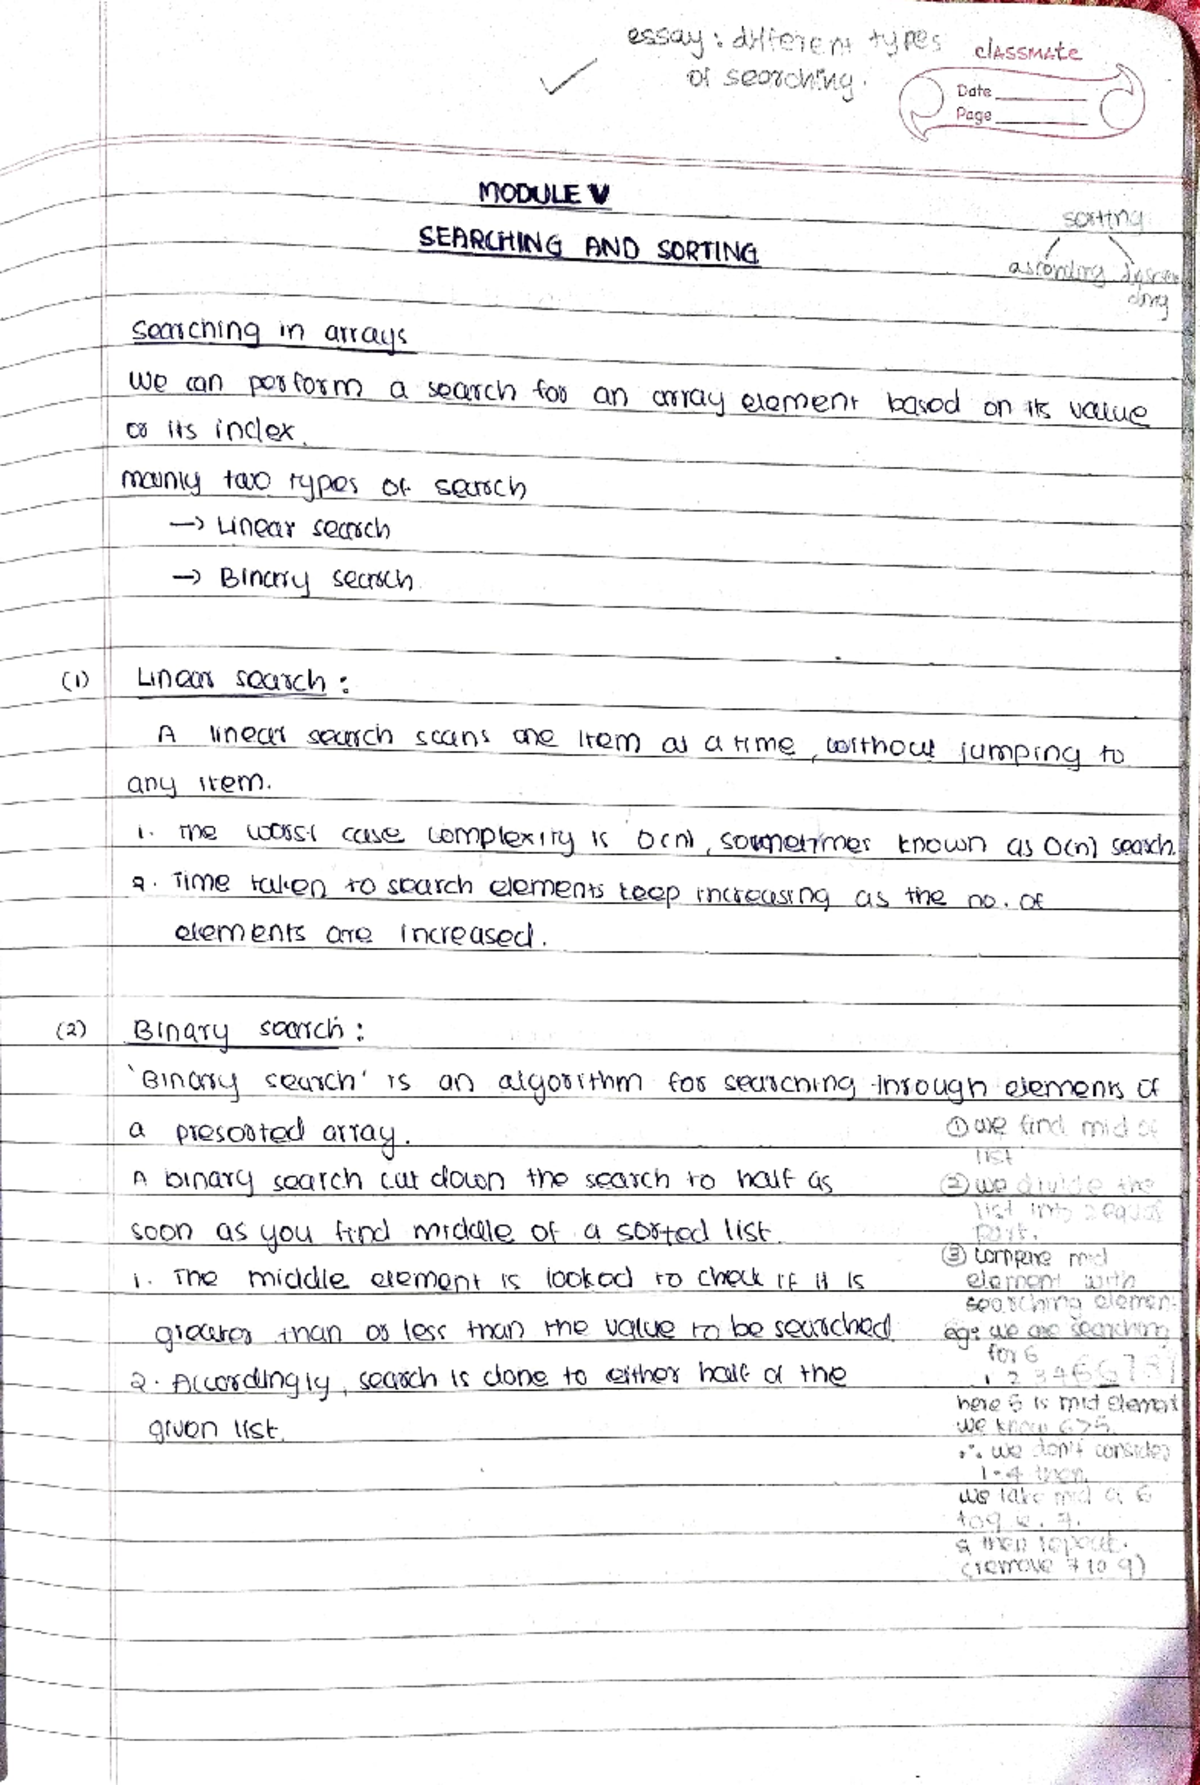 essay: different types
of searching.
classmate
Date
Page
MODULE V
SEARCHING AND SORTING
sorting
ascending descen
ding
Searching in arrays
We can perform a search for an array element based on its value
or its index.
mainly two types of search
→ Linear search
→ Binary search
(1) Linear search:
A linear search scans one item at a time, without jumping to
any item.
1. The worst case complexity is O(n), sometimes known as O(n) search.
2. Time taken to search elements keep increasing as the no. of
elements are increased.
(2) Binary search:
'Binary search' is an algorithm for searching through elements of
a presorted array.
A binary search cut down the search to half as
soon as you find middle of a sorted list.
1. The middle element is looked to check if it is
greater than or less than the value to be searched
2. Accordingly, search is done to either half of the
given list.
① we find mid of
list
② we divide the
list into 2 equal
part.
③ compare mid
element with
searching elemen
eg: we are searching
for 6
1 2 3 4
here 5 is mid element
we know 6>5
∴ we don't consider
1-4 then
we take mid of 6
to 9 7.
& then repeat.
(remove 7 to 9)